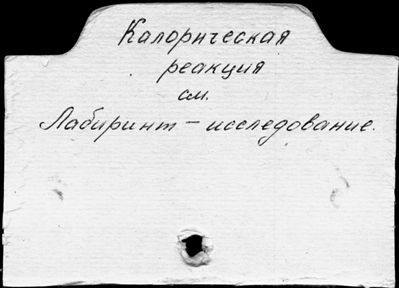 Калорическая
реакция
см.
Лабиринт – исследование.